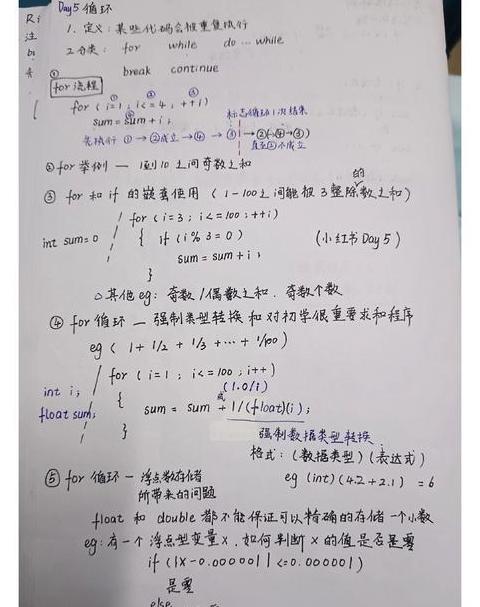 Day5 循环
1. 定义：某些代码会被重复执行
2 分类： for while do … while
break continue
① for 流程
for (i=1 ; i<=4 ; ++i)
① ② ③
sum=sum+i ;
④
标志循环1次结束
先执行 ①→②成立→④→③→②(→④→③)
直至②不成立
② for 举例 — 1到10之间奇数之和
③ for 和 if 的嵌套使用 (1-100之间能被3整除的数之和)
int sum=0
for (i=3; i<=100; ++i)
{ if (i%3=0)
(小红书 Day 5)
sum=sum+i ;
}
△其他eg: 奇数/偶数之和. 奇数个数
④ for 循环 — 强制类型转换 和 对初学很重要求和程序
eg ( 1+1/2+1/3+…+1/100 )
int i;
for (i=1 ; i<=100 ; i++)
float sum;
{
或 (1.0/i)
sum = sum + 1/(float)(i) ;
}
强制数据类型转换
格式: (数据类型)(表达式)
⑤ for 循环 — 浮点数存储
所带来的问题
eg (int)(4.2+2.1) = 6
float 和 double 都不能保证可以精确的存储一个小数
eg: 有一个浮点型变量X, 如何判断X的值是否是零
if (|X-0.000001|<=0.000001)
是零
else